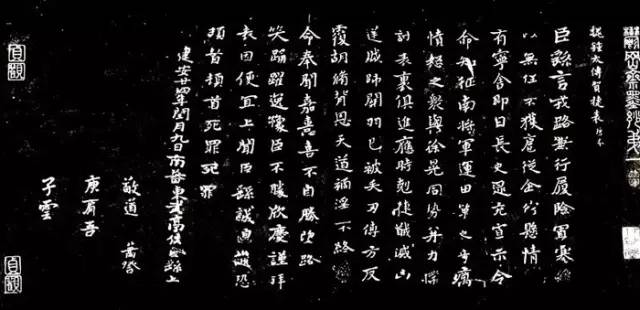 魏鍾太傅賀捷表
臣繇言戎路兼行履險冒寒
以無任不獲扈從企佇懸情
有寧舍即日長史逯充宣示令
命知征南將軍運田單之奇厲
憤怒之眾與徐晃同勢并力撲
討表裏俱進應時剋捷馘滅凶
逆賊帥關羽已被矢刃傅方反
覆胡脩背恩天道禍淫不終
命奉聞嘉憙喜不自勝望路
笑踊躍逸豫臣不勝欣慶謹拜
表因便宜上聞臣繇誠惶誠恐
頓首頓首死罪死罪
建安廿四年閏月九日南蕃東武亭侯臣繇上
庾肩吾
子雲
貞觀
貞觀